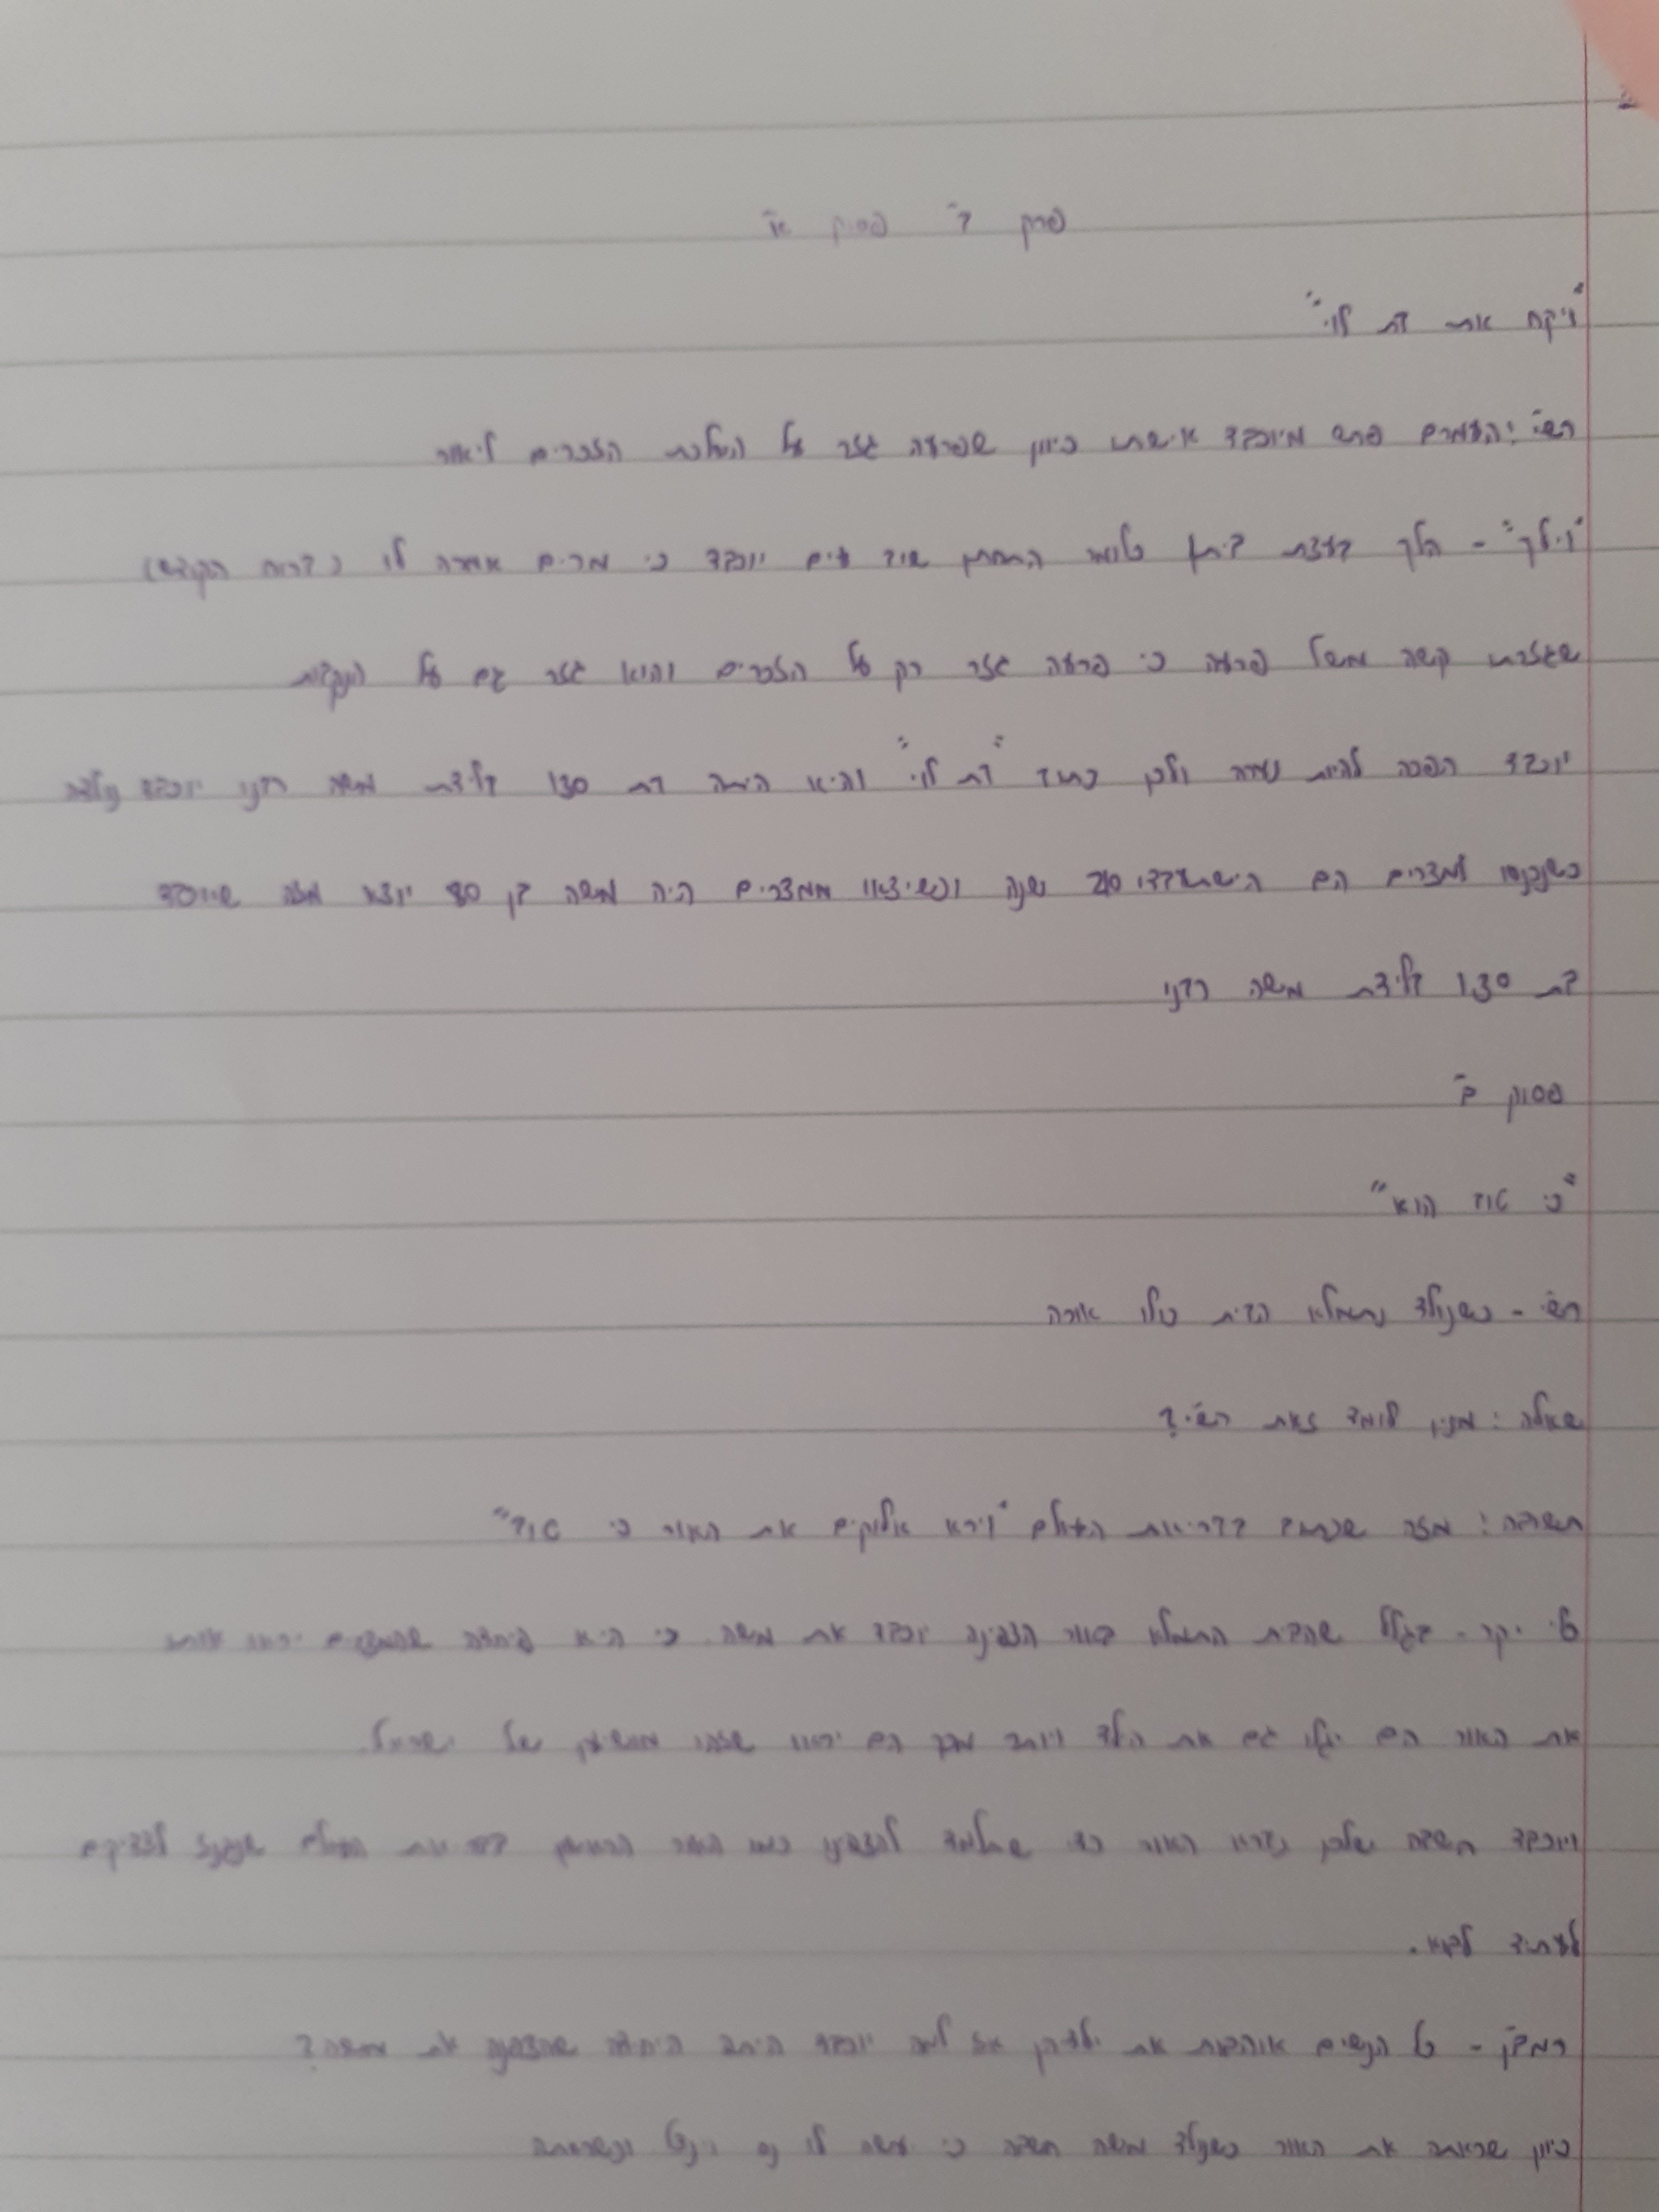 פרק ב' פסוק א'
"ויקח את בת לוי"
רש"י: העמרם פרש מיוכבד אישתו כיוון שפרעה גזר על השלכת הזכרים ליאור
"וילך" - הלך בעצת ביתו כלומר התחתן שוב עים יוכבד כי מרים אמרה לו (ברוח הקודש)
שגזרתו קשה משל פרעה כי פרעה גזר רק על הזכרים והוא גזר גם על הנקבות
יוכבד הפכה להיות נערה ולכן כתוב "בת לוי" והיא היתה בת 130 בלידת משה רבנו יוכבד נולדה
כשנכנסו למצרים הם הישתעבדו 210 שנה וכשיצאו ממצרים היה משה בן 80 יוצא מזה שיוכבד
בת 130 בלידת משה רבנו
פסוק ב'
"כי טוב הוא"
רש"י - כשנולד נתמלא הבית כולו אורה
שאלה: מנין לומד זאת רש"י?
תשובה: מזה שכתוב בבריאת העולם "וירא אלוקים את האור כי טוב"
כלי יקר - בגלל שהבית התמלא באור הצפינה יוכבד את משה. כי היא פיחדה שהמצרים יראו אותו
את האור הם יגלו גם את הילד ויותר מכך הם יראו שזהו מושיען של ישראל.
ויוכבד חשבה שלכן נברא האור כדי שתלמד להצפינו כמו האור הראשון בבריאת העולם שנגנז לצדיקים
לעתיד לבוא.
רמב"ן - כל הנשים אוהבות את ילדיהן אז למה יוכבד היתה היחידה שהצפינה את משה?
כיוון שראתה את האור כשנולד משה חשבה כי יעשה לו נס וינצל